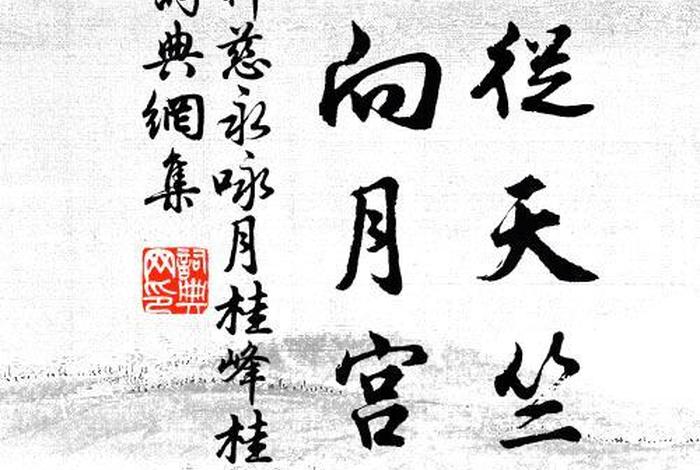 從天竺
向月宮
慈永咏月桂峰桂
典網集
詞典
网印